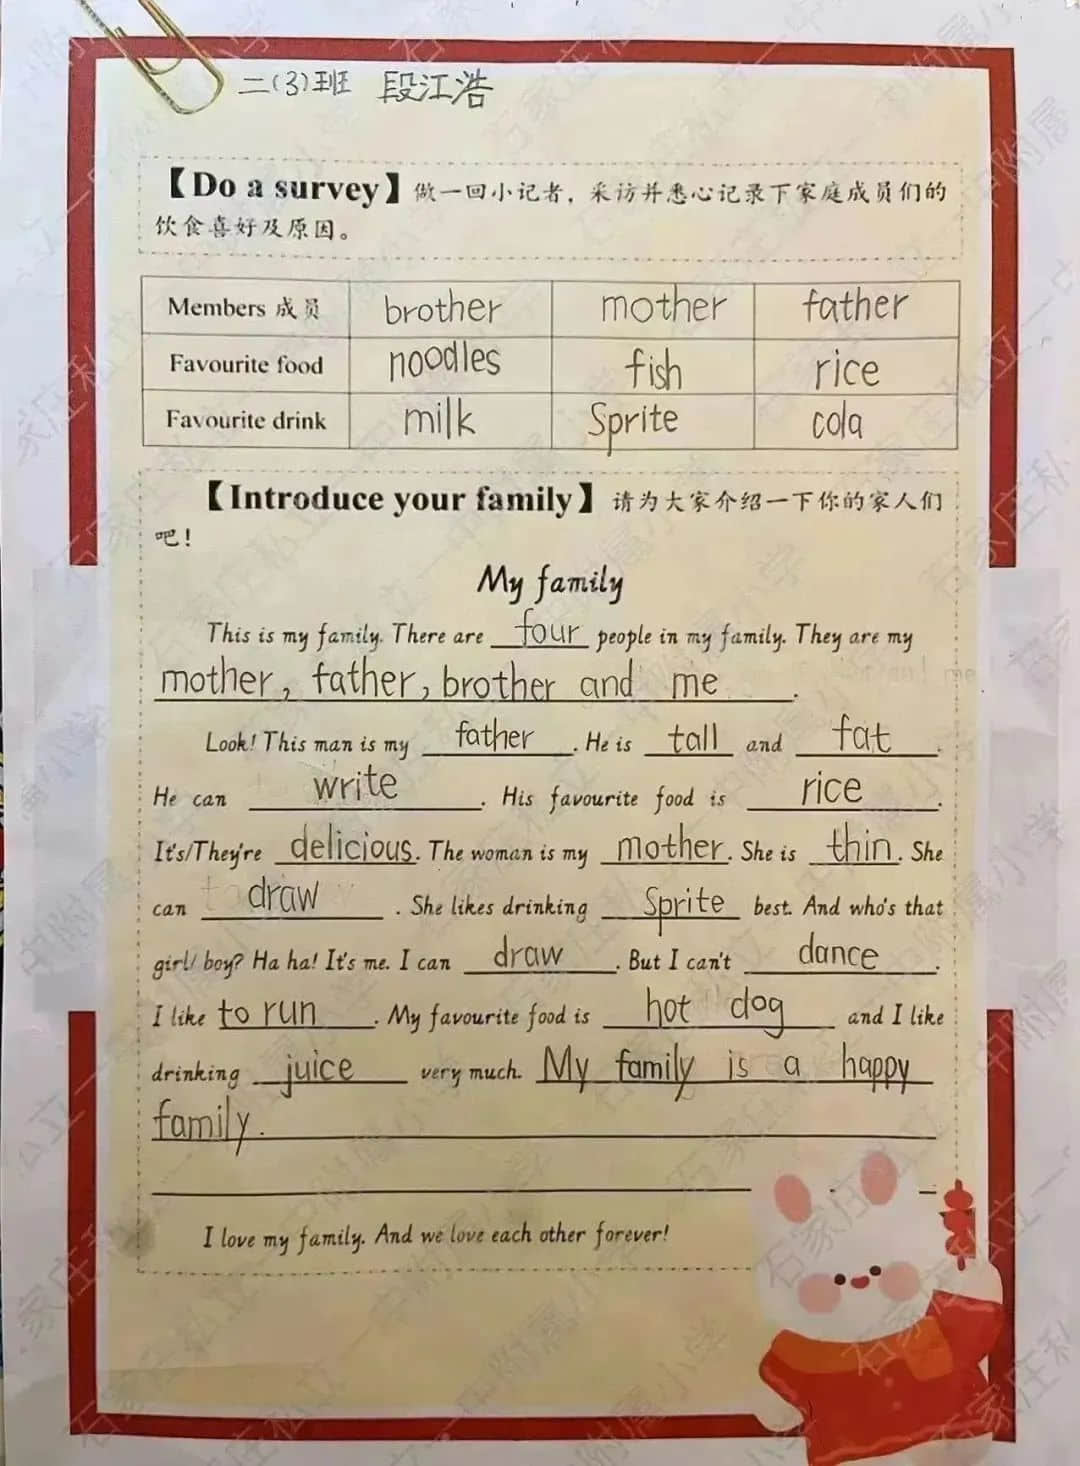 二(3)班 段江浩
【Do a survey】做一回小记者，采访并悉心记录下家庭成员们的
饮食喜好及原因。
Members 成员 brother mother father
Favourite food noodles fish rice
Favourite drink milk Sprite cola
【Introduce your family】请为大家介绍一下你的家人们
吧！
My family
This is my family. There are four people in my family. They are my
mother, father, brother and me.
Look! This man is my father. He is tall and fat.
He can write. His favourite food is rice.
It's/They're delicious. The woman is my mother. She is thin. She
can draw. She likes drinking Sprite best. And who's that
girl/boy? Ha ha! It's me. I can draw. But I can't dance.
I like to run. My favourite food is hot dog and I like
drinking juice very much. My family is a happy
family.
I love my family. And we love each other forever!
石家庄私立一中附属小学